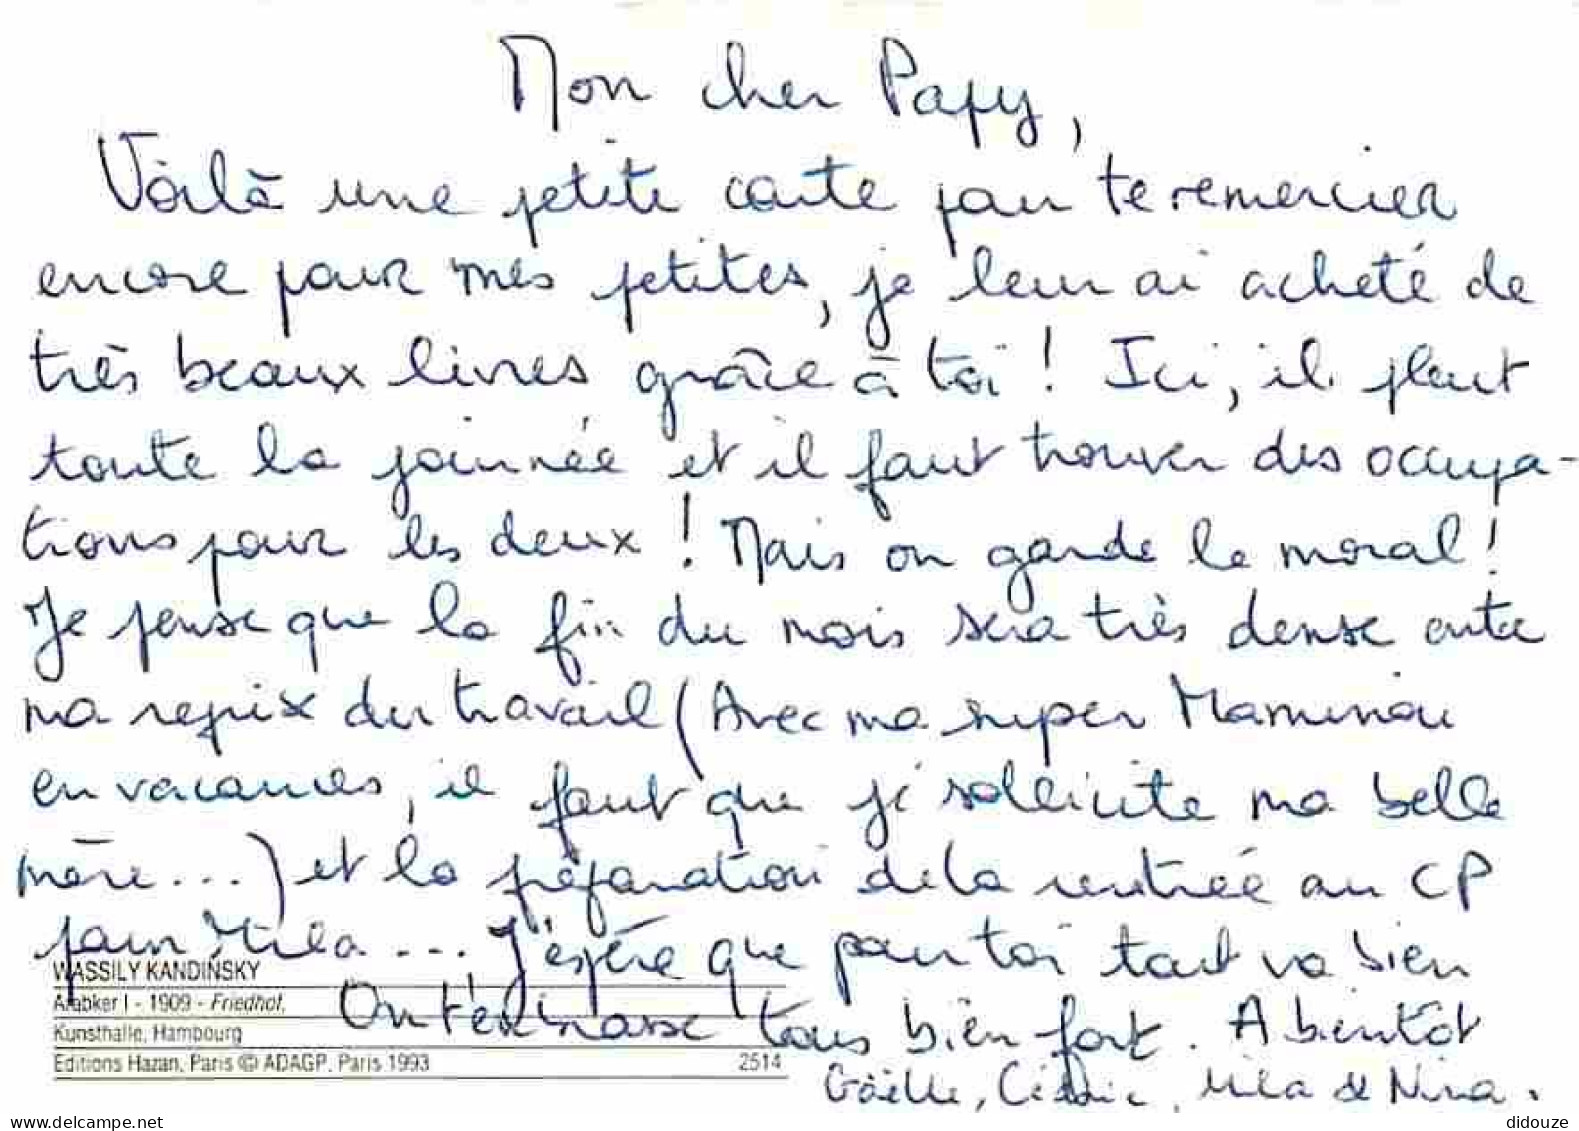 Mon cher Papy,
Voilà une petite carte pour te remercier
encore pour mes petites, je leur ai acheté de
très beaux livres grâce à toi ! Ici, il pleut
toute la journée et il faut trouver des occupa-
tions pour les deux ! Mais on garde le moral !
Je pense que la fin du mois sera très dense entre
ma reprise du travail (Avec ma super Maminou
en vacances, il faut que je sollicite ma belle
mère...) et la préparation de la rentrée au CP
pour Mila... J'espère que pour toi tout va bien
WASSILY KANDINSKY
On t'embrasse tous bien fort. A bientôt
Arabker I - 1909 - Friedhof,
Kunsthalle, Hambourg
Editions Hazan, Paris © ADAGP, Paris 1993 2514
Gaëlle, Cédric, Mila & Nina.
delcampe.net
didouze